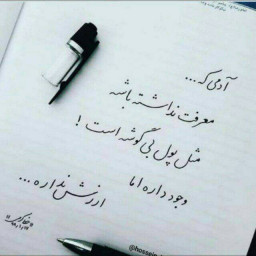 آدمی که...
معرفت نداشته باشه
مثل پول بی گوشه است !
وجود داره اما
ارزش نداره...
@hossein